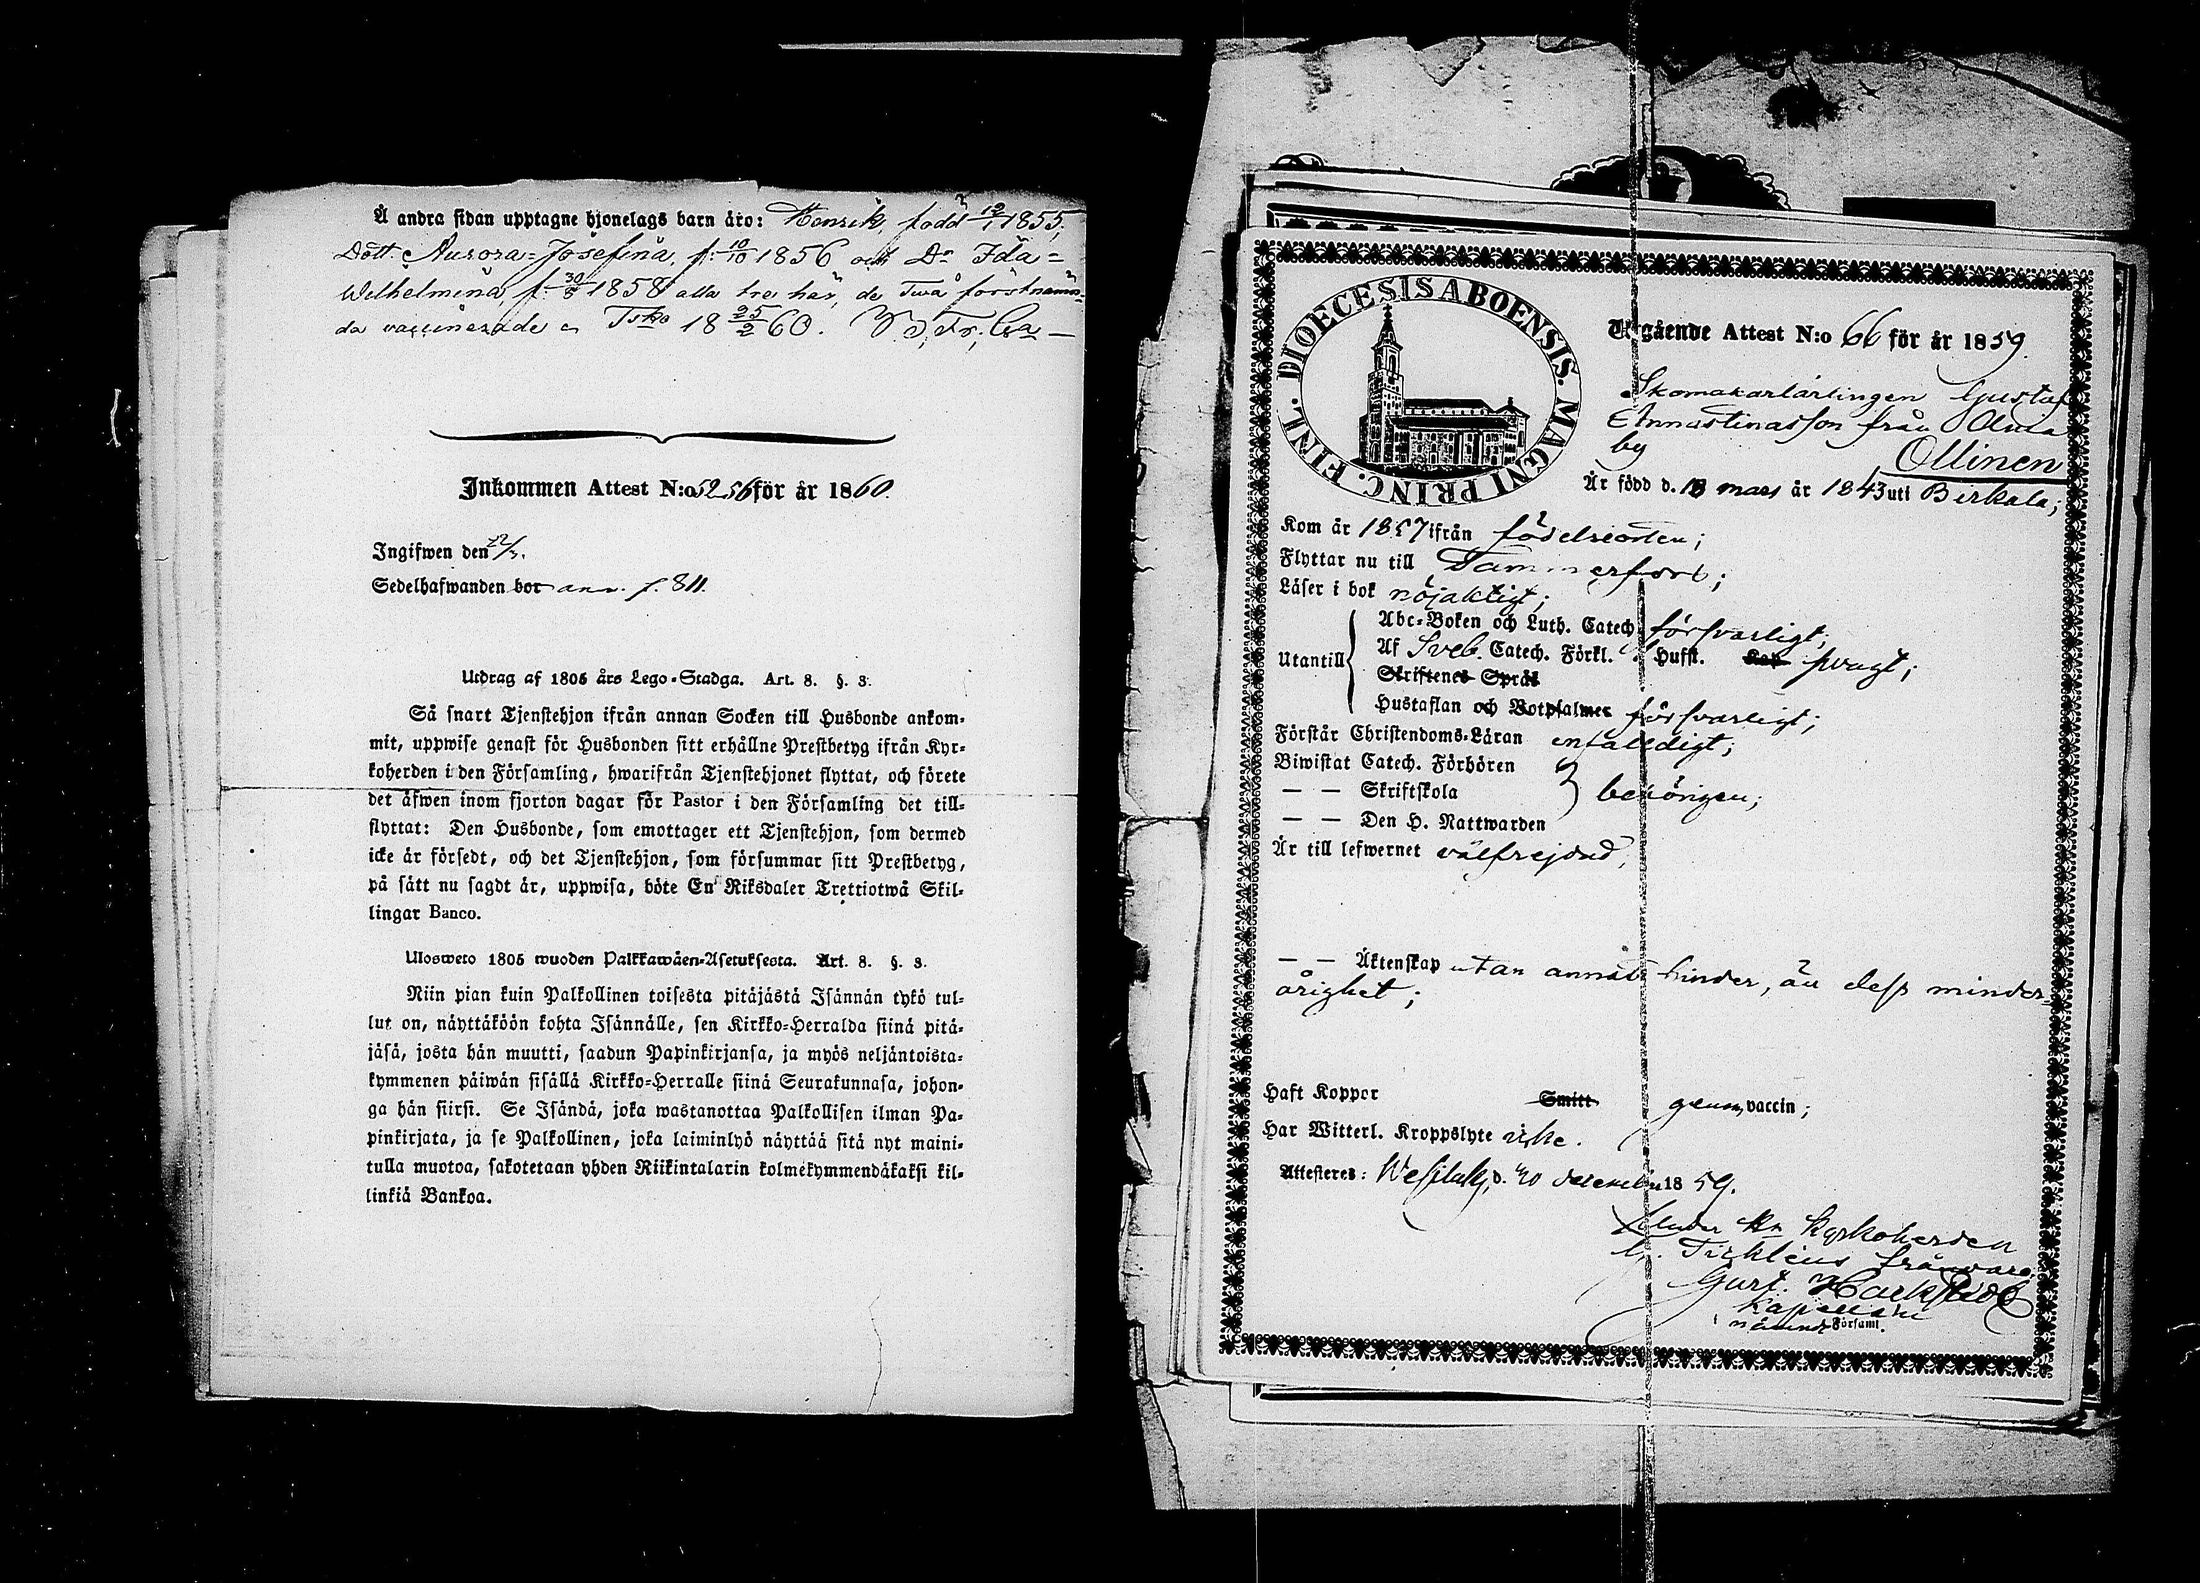 Å andra sidan upptagne hjonelags barn äro: Henrik, född 12/1 1855,
Dott: Aurora=Josefina, f: 10/10 1856 och Do Ida=
Wilhelmina, f: 30/5 1858 alla tre här, de Två förstnämn=
da vaccinerade 18 25/2 60.
Inkommen Attest N:o 52 56 för år 1860.
Ingifwen den 22/3.
Sedelhafwanden bor ann. f. 811.
Utdrag af 1805 års Lego-Stadga. Art. 8. §. 3.
Så snart Tjenstehjon ifrån annan Socken till Husbonde ankom-
mit, uppwise genast för Husbonden sitt erhållne Prestbetyg ifrån Kyr-
koherden i den Församling, hwarifrån Tjenstehjonet flyttat, och förete
det äfwen inom fjorton dagar för Pastor i den Församling det till-
flyttat: Den Husbonde, som emottager ett Tjenstehjon, som dermed
icke är försedt, och det Tjenstehjon, som försummar sitt Prestbetyg,
på sätt nu sagdt är, uppwisa, böte En Riksdaler Trettiotwå Skil-
lingar Banco.
Ulosweto 1805 wuoden Palkkawäen-Asetuksesta. Art. 8. §. 3.
Niin pian kuin Palkollinen toisesta pitäjästä Isännän tykö tul-
lut on, näyttäköön kohta Isännälle, sen Kirkko-Herralda siinä pitä-
jäsä, josta hän muutti, saadun Papinkirjansa, ja myös neljäntoista-
kymmenen päiwän sisällä Kirkko-Herralle siinä Seurakunnasa, johon-
ga hän siirsi. Se Isändä, joka wastanottaa Palkollisen ilman Pa-
pinkirjata, ja se Palkollinen, joka laiminlyö näyttää sitä nyt maini-
tulla muotoa, sakotetaan yhden Riikintalarin kolmekymmendäkaksi kil-
linkiä Bankoa.
DIOECESIS ABOENSIS. MAGNI PRINC. FINL.
Utgående Attest N:o 66 för år 1859.
Skomakarlärlingen Gustaf
Annastinasson från
by Ollinen
Är född d. 18 mars år 1843 uti Birkala;
Kom år 1857 ifrån födelseorten;
Flyttar nu till Tammerfors;
Läser i bok nöjaktigt;
Abc-Boken och Luth. Catech. försvarligt;
Utantill Af Sveb. Catech. Förkl. Hufst. Kap svagt;
Skriftenes Språk
Hustaflan och Botpsalmer försvarligt;
Förstår Christendoms-Läran enfalldigt;
Biwistat Catech. Förhören
— — Skriftskola behörigen;
— — Den H. Nattwarden
Är till lefwernet välfrejdad;
— — Äktenskap utan annat hinder, än dess minder=
årighet;
Haft Koppor Smitt genom vaccin;
Har Witterl. Kroppslyte icke.
Attesteres: d. 20 december 1859.
Kyrkoherden
frånvaro
Gust.
Kapellan i
nämnd Församl.